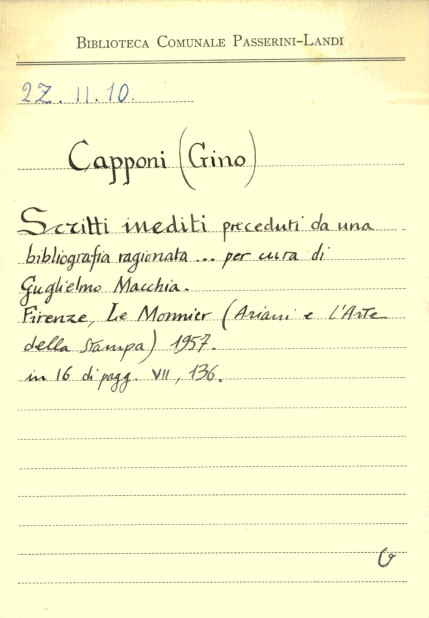 BIBLIOTECA COMUNALE PASSERINI-LANDI
2Z. II. 10.
Capponi (Gino)
Scritti inediti preceduti da una
bibliografia ragionata ... per cura di
Guglielmo Macchia.
Firenze, Le Monnier (Ariani e L'Arte
della Stampa) 1957.
in 16 di pagg. VII, 136.